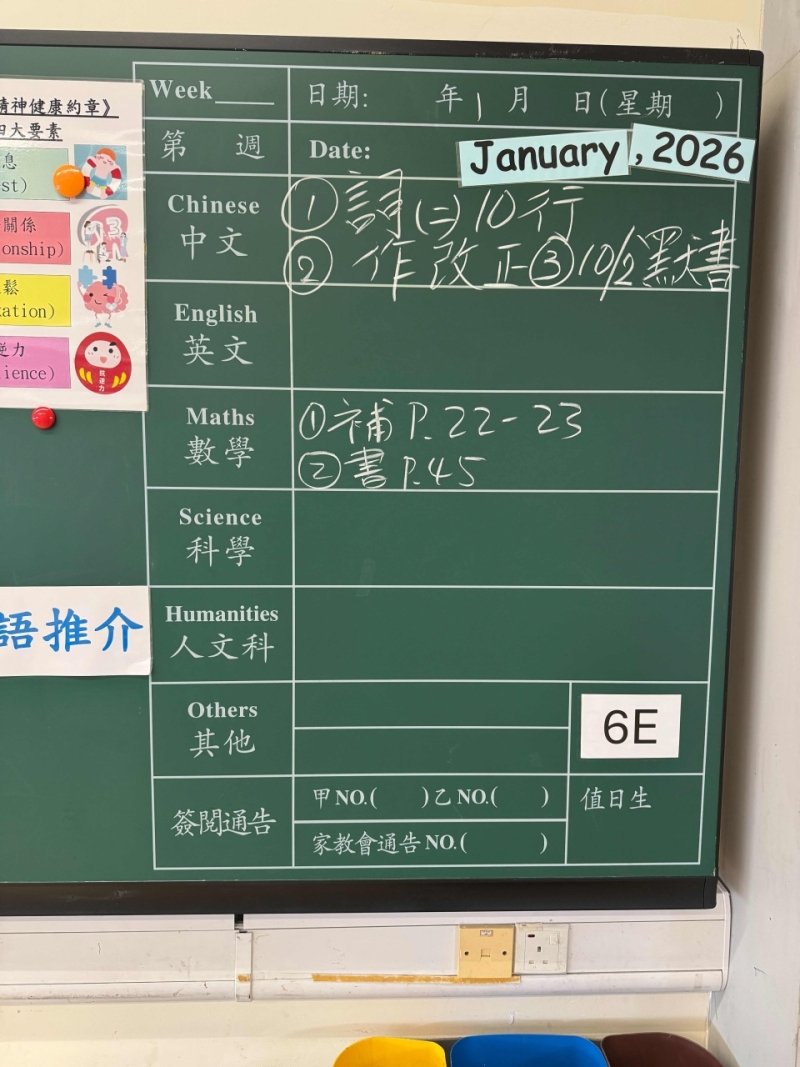 精神健康約章》
四大要素
息
est)
關係
onship)
鬆
xation)
逆力
ience)
我逆力
語推介
Week____ 日期: 年1月 日(星期 )
第 週 Date: January, 2026
Chinese 中文
①詞(二)10行
②作改正③10/2默書
English 英文
Maths 數學
①補P.22-23
②書P.45
Science 科學
Humanities 人文科
Others 其他
6E
簽閱通告
甲NO.( )乙NO.( ) 值日生
家教會通告NO.( )